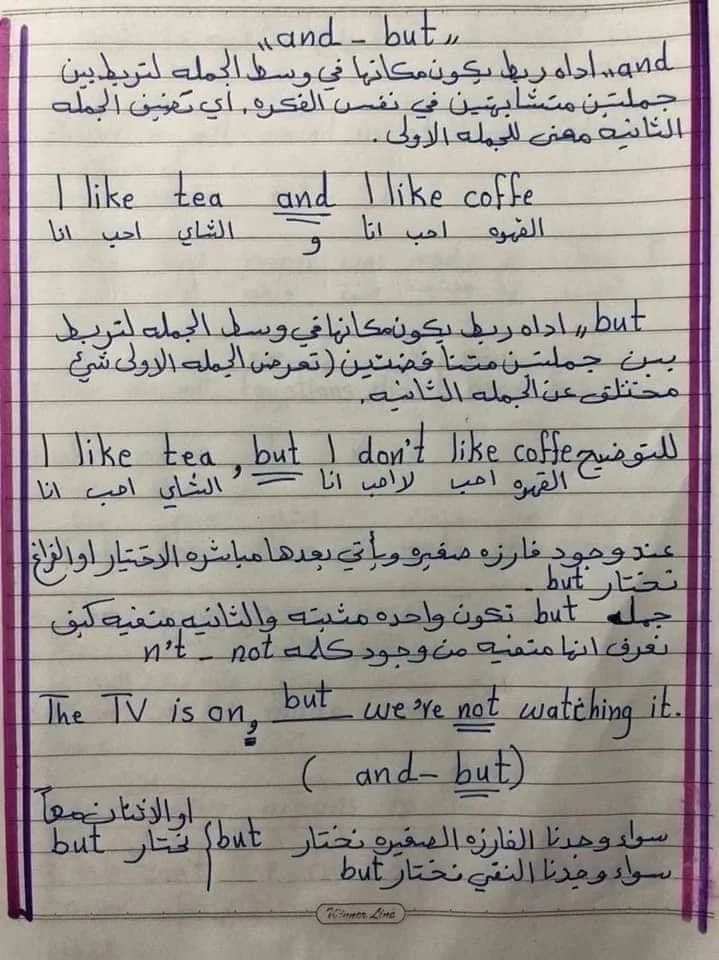 «and - but»
and,, اداه ربط يكون مكانها في وسط الجمله لتربط بين
جملتين متشابهتين في نفس الفكره. اي تضيف الجمله
الثانيه معنى للجمله الاولى.
I like tea and I like coffe
انا احب الشاي و انا احب القهوه
but,, اداه ربط يكون مكانها في وسط الجمله لتربط
بين جملتين متناقضتين (تعرض الجمله الاولى شئ
مختلق عن الجمله الثانيه.
للتوضيح I like tea, but I don't like coffe
انا احب الشاي انا لااحب احب القهوه
عند وجود فارزه صغيره ويأتي بعدها مباشره الاختيار او الفراغ
نختار but
جمله but تكون واحده مثبته والثانيه منفيه كيف
نعرف انها منفيه من وجود كلمه n't - not
The TV is on, but we're not watching it.
( and - but )
سواء وجدنا الفارزه الصغيره نختار but
سواء وجدنا النفي نختار but
او الاثنان معاً
نختار but
Winner Line